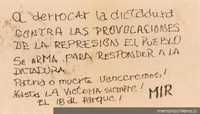 a derrocar la dictadura
CONTRA LAS PROVOCACIONES
DE LA REPRESIÓN EL PUEBLO
SE ARMA PARA RESPONDER A LA
DICTADURA
Patria o muerte Venceremos!
Hasta LA VICTORIA SIEMPRE!
El 18 al Parque! MIR
www.memoriachilena.cl